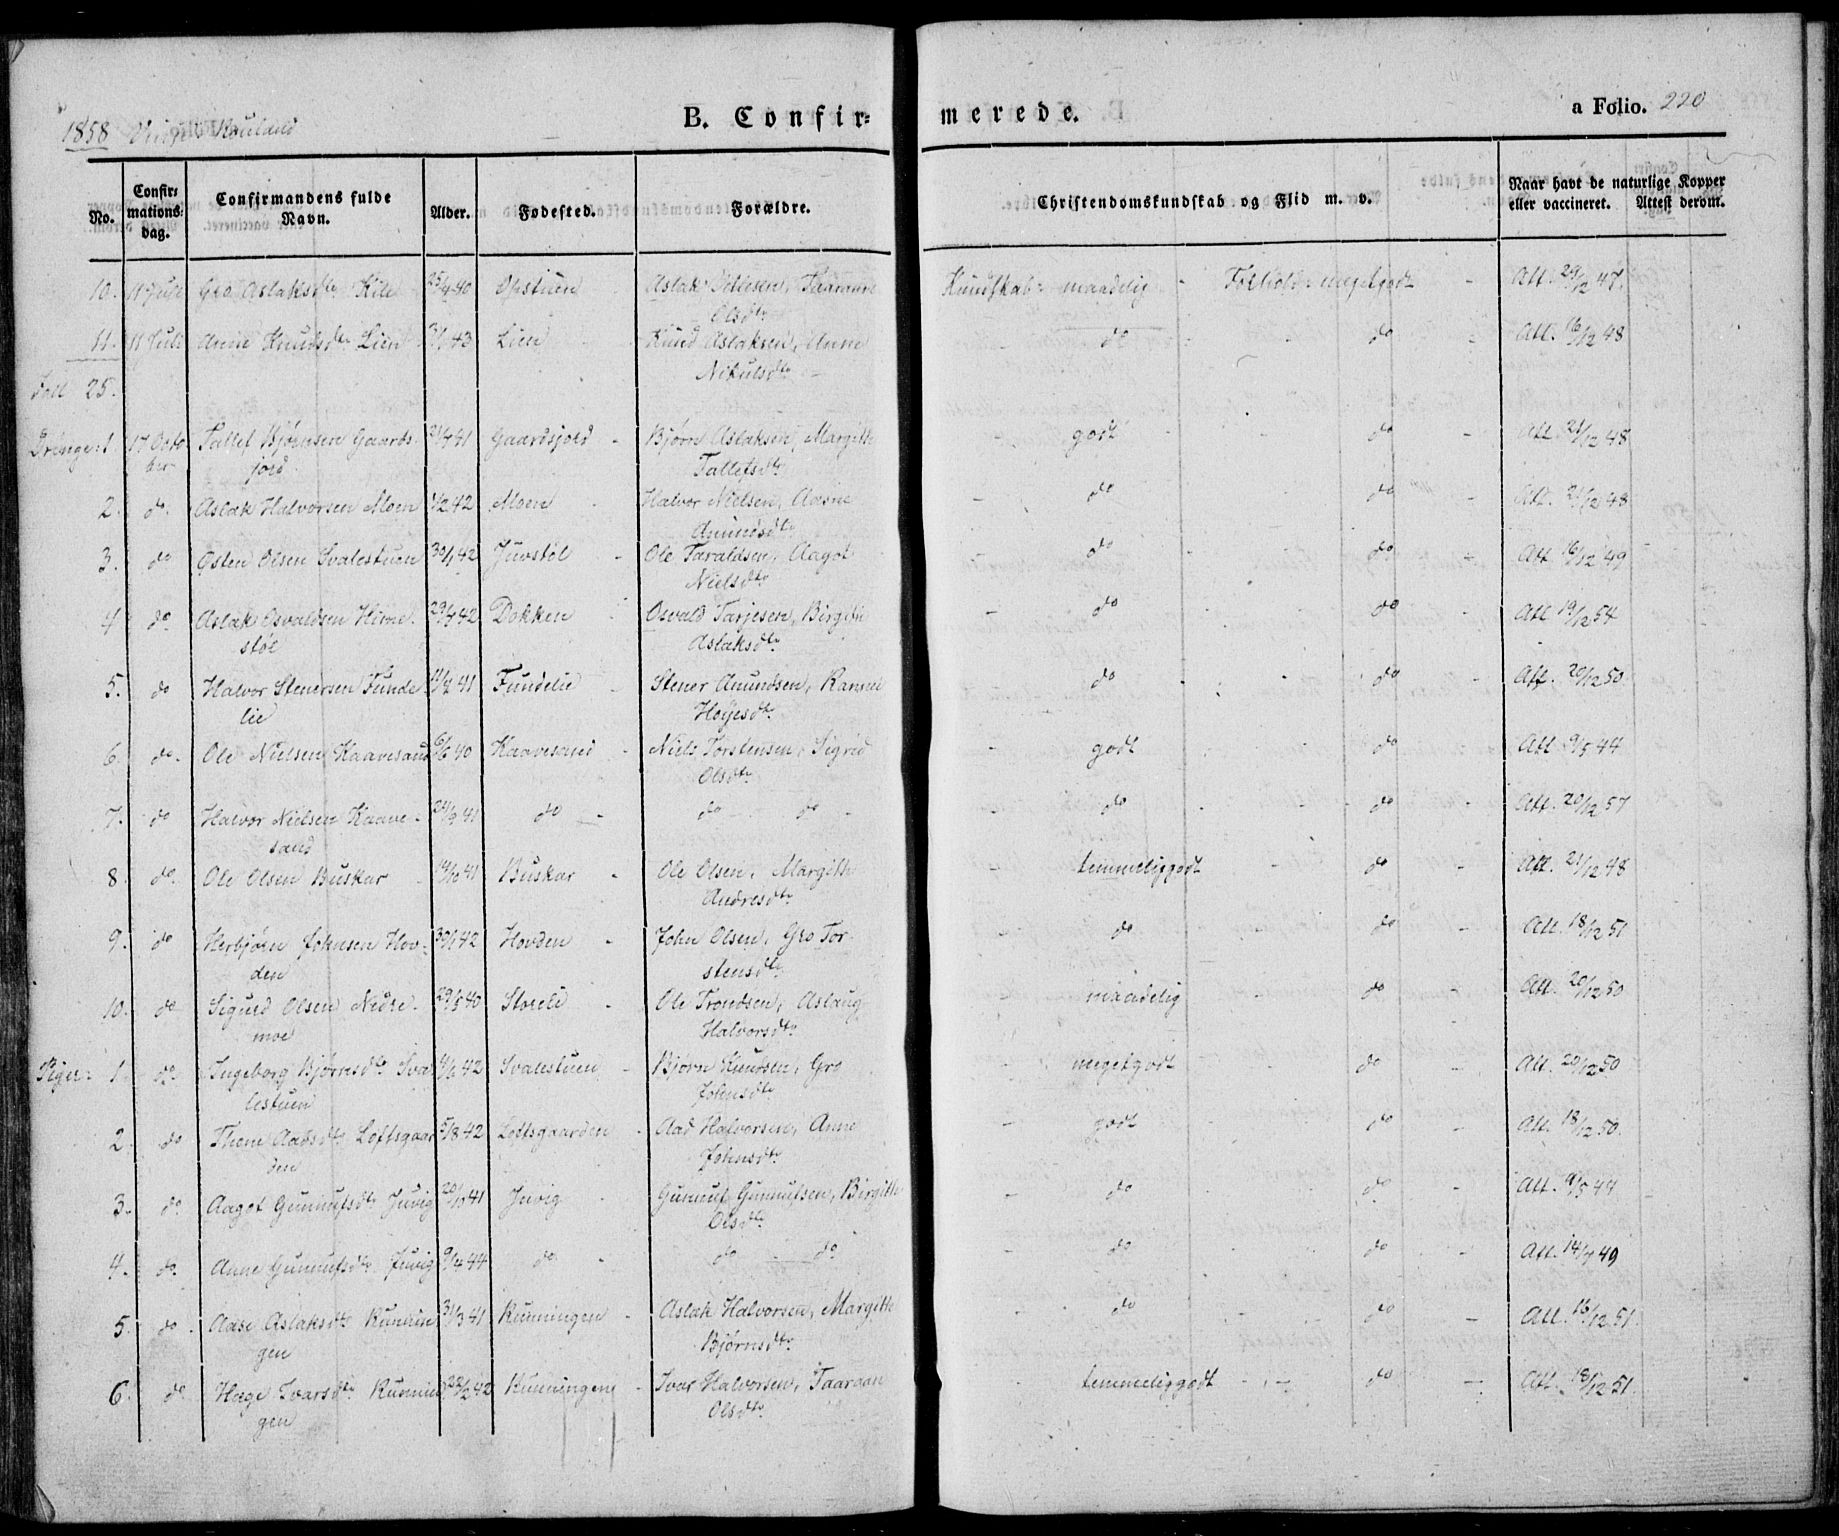 1858 Vinje Rauland
B. Confir=
merede.
a Folio. 220
No. Confir: mations= dag. Confirmandens fulde Navn. Alder. Fødested. Forældre. Christendomskundskab og Flid m. v. Naar havt de naturlige Kopper eller vaccineret. Attest derom.
10. 11 Juli Gro Aslaksdtr Kile 25/4 40 Opstuen Aslak Tetlesen, Taaranne Kundskab= maadelig - Forhold= megetgodt - Att. 29/12 47.
Olsdtr
11. 11 Juli Anne Knudsdtr Lien 3/1 43 Lien Knud Aslaksen, Anne do do - Att. 16/12 48
Nikulsdtr -
Tall 25.
Drenge: 1 17 Octo Tallef Bjørnsen Gaards- 21/7 41 Gaardsjord - Bjørn Aslaksen, Margith godt - do - Att. 21/12 48
ber jord. Tallefsdtr
2. do. Aslak Halvorsen Moen 1/2 42 Moen Halvor Nielsen, Aasne - do do - Att. 21/12 48
Amundsdtr
3. do Østen Olsen Svalestuen 30/1 42 Juvstøl - Ole Taraldsen, Aagot - do - do - Att. 16/12 49
Nielsdtr
4 do. Aslak Osvaldsen Hime- 29/7 42 Dokken Osvald Tarjesen, Birgith - do - do Att. 19/12 54
støl Aslaksdtr
5. do Halvor Stenersen Funde 11/8 41 Fundelie - Stener Amundsen, Ranne do - do - Att. 20/12 50
lie Høljesdtr
6. do. Ole Nielsen Kaavesand 6/6 40 Kaavesand - Niels Torstensen, Sigrid - godt - do Att. 9/5 44
Olsdtr
7. do Halvor Nielsen Kaave- 24/9 41 do - do do - - do - do - Att. 20/12 57
sand
8. do. Ole Olsen Buskar 14/10 41 Buskar - Ole Olsen, Margith - temmeliggodt - do - Att. 21/12 48
Andresdtr
9. do Herbjørn Johnsen Hov- 30/1 42 Hovden - John Olsen, Gro Tor- do do - Att. 18/12 51
den stensdtr
10. do Sigurd Olsen Nedre- 29/5 40 Storeli - Ole Trondsen, Aslaug maadelig - do - Att. 20/12 50
moe Halvorsdtr
Piger: 1. do. Ingeborg Bjørnsdtr Sva 4/6 42 Svalestuen - Bjørn Knudsen, Gro - megetgodt do - Att. 20/12 50
lestuen Johnsdtr
2. do Thone Aadsdtr Loftsgaar 5/8 42 Loftsgaarden - Aad Halvorsen, Anne - godt - do - Att. 18/12 50.
den Johnsdtr
3. do. Aagot Gunnufsdtr Juvig 20/10 41 Juvig - Gunnuf Gunnufsen, Birgith - do - do - Att. 9/5 44
Olsdtr
4. do. Anne Gunnufsdtr Juvig 9/4 44 do. - do - do - do do - Att. 14/7 49
5. do. Aase Aslaksdtr Runnin 31/3 41 Runningen - Aslak Halvorsen, Margith - do - do - Att. 16/12 51.
gen Bjørnsdtr
6. do. Hæge Ivarsdtr Runnin 22/2 42 Runningen - Ivar Halvorsen, Taaraan - temmeliggodt - do - Att. 18/12 51.
gen Olsdtr